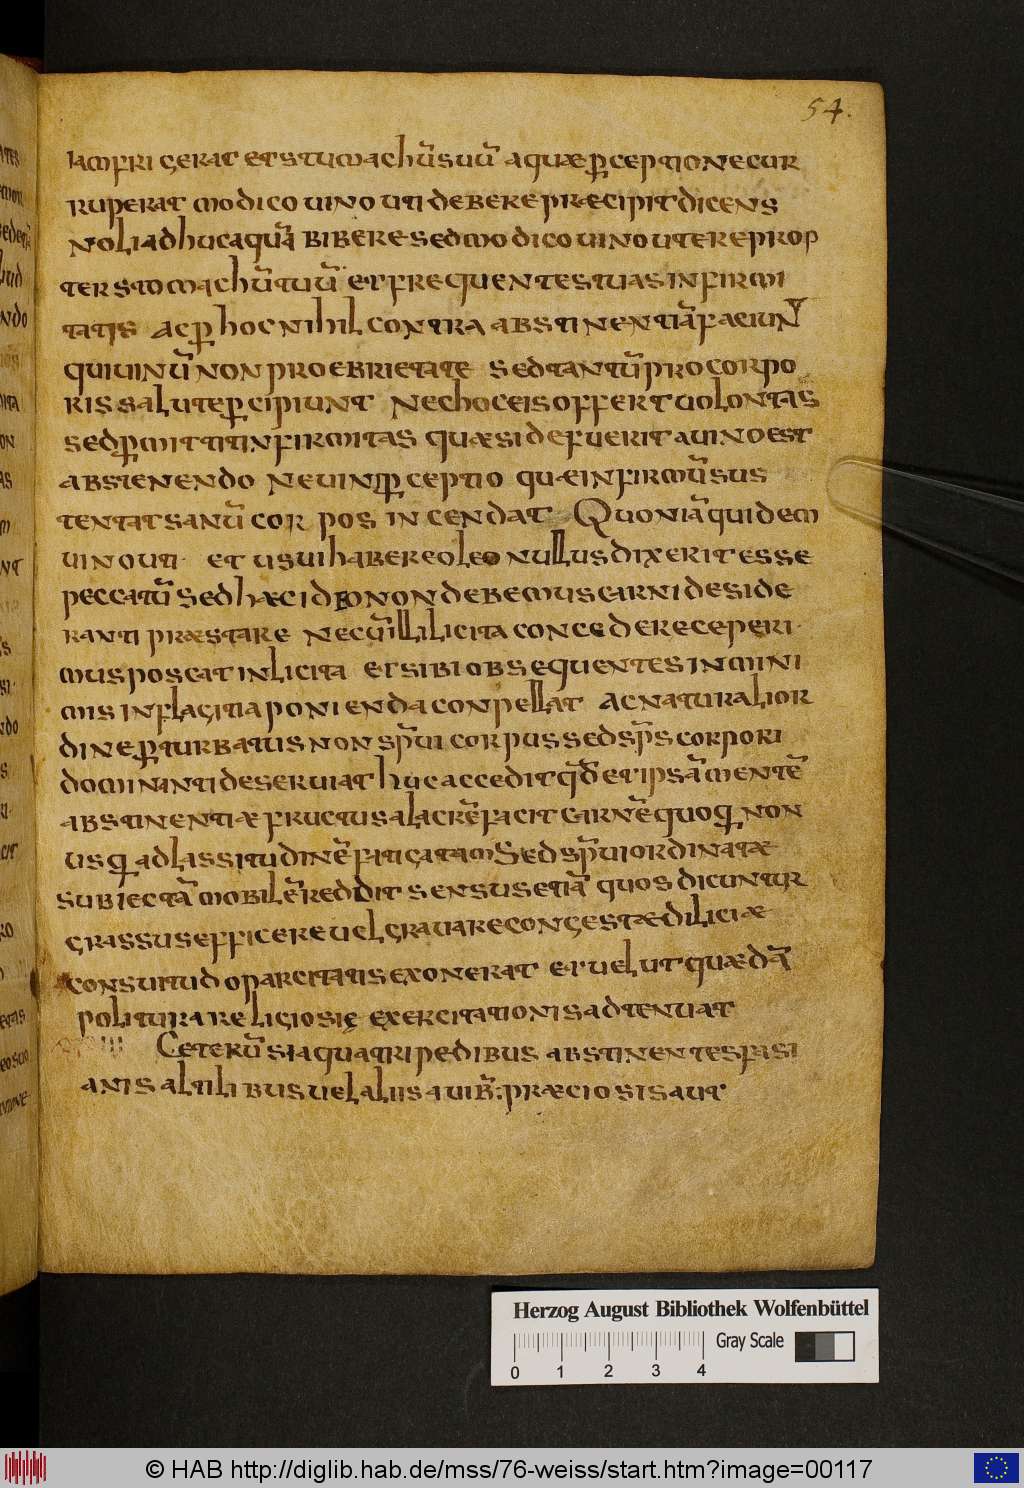 54.
iam friçerat et stumachū suū aquæ p̱ceptione cur
ruperat modico uino uti debere præcipit dicens
noli adhuc aquā bibere sed modico uino utere prop
ter stomachū tuū et frequentes tuas infirmi
tatis ac p̱ hoc nihil contra abstinentiā faciunt
qui uinū non pro ebrietate sed tantū pro corpo
ris salute p̱cipiunt nec hoc eis offert uolontas
sed p̱mittit infirmitas quæ si defuerit a uino est
abstenendo ne uini p̱ceptio quæ infirmū sus
tentat sanū corpos incendat Quoniā quidem
uino uti et usui habere oleo nullus dixerit esse
peccatū sed hæc ideo non debemus carni deside
ranti præstare ne cū illi licita concedere ceperi
mus poscat inlicita et sibi obsequentes in mini
mis in flagitia ponienda conpellat ac naturali or
dine p̱turbatus non sp̄ui corpus sed sp̄s corpori
dominanti deseruiat huc accedit qđ et ipsā mentē
abstinentiæ fructus alacrē facit carnē quoq; non
usq; ad lassitudinē faticatam Sed sp̄ui ordinatæ
subiectā mobilē reddit sensus etiā quos dicuntur
grassus efficere uel grauare congestæ diliciæ
consuitudo parcitatis exonerat et uelut quædā
politura religiosię exercitationis adtenuat
Ceterū si a quatripedibus abstinentes fasi
anis altilibus uel aliis auib; præciosis aut
Herzog August Bibliothek Wolfenbüttel
Gray Scale
0 1 2 3 4
© HAB http://diglib.hab.de/mss/76-weiss/start.htm?image=00117